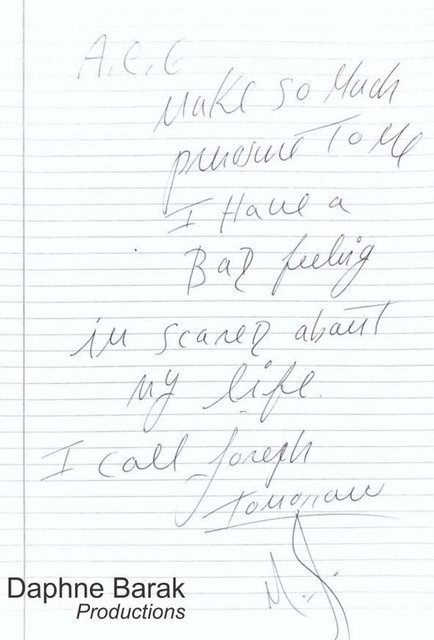 A.E.G
Make so Much
pressure To Me
I Have a
BaD feeling
im scareD about
my life.
I call Joseph
Tomorrow
M.J.
Daphne Barak
Productions